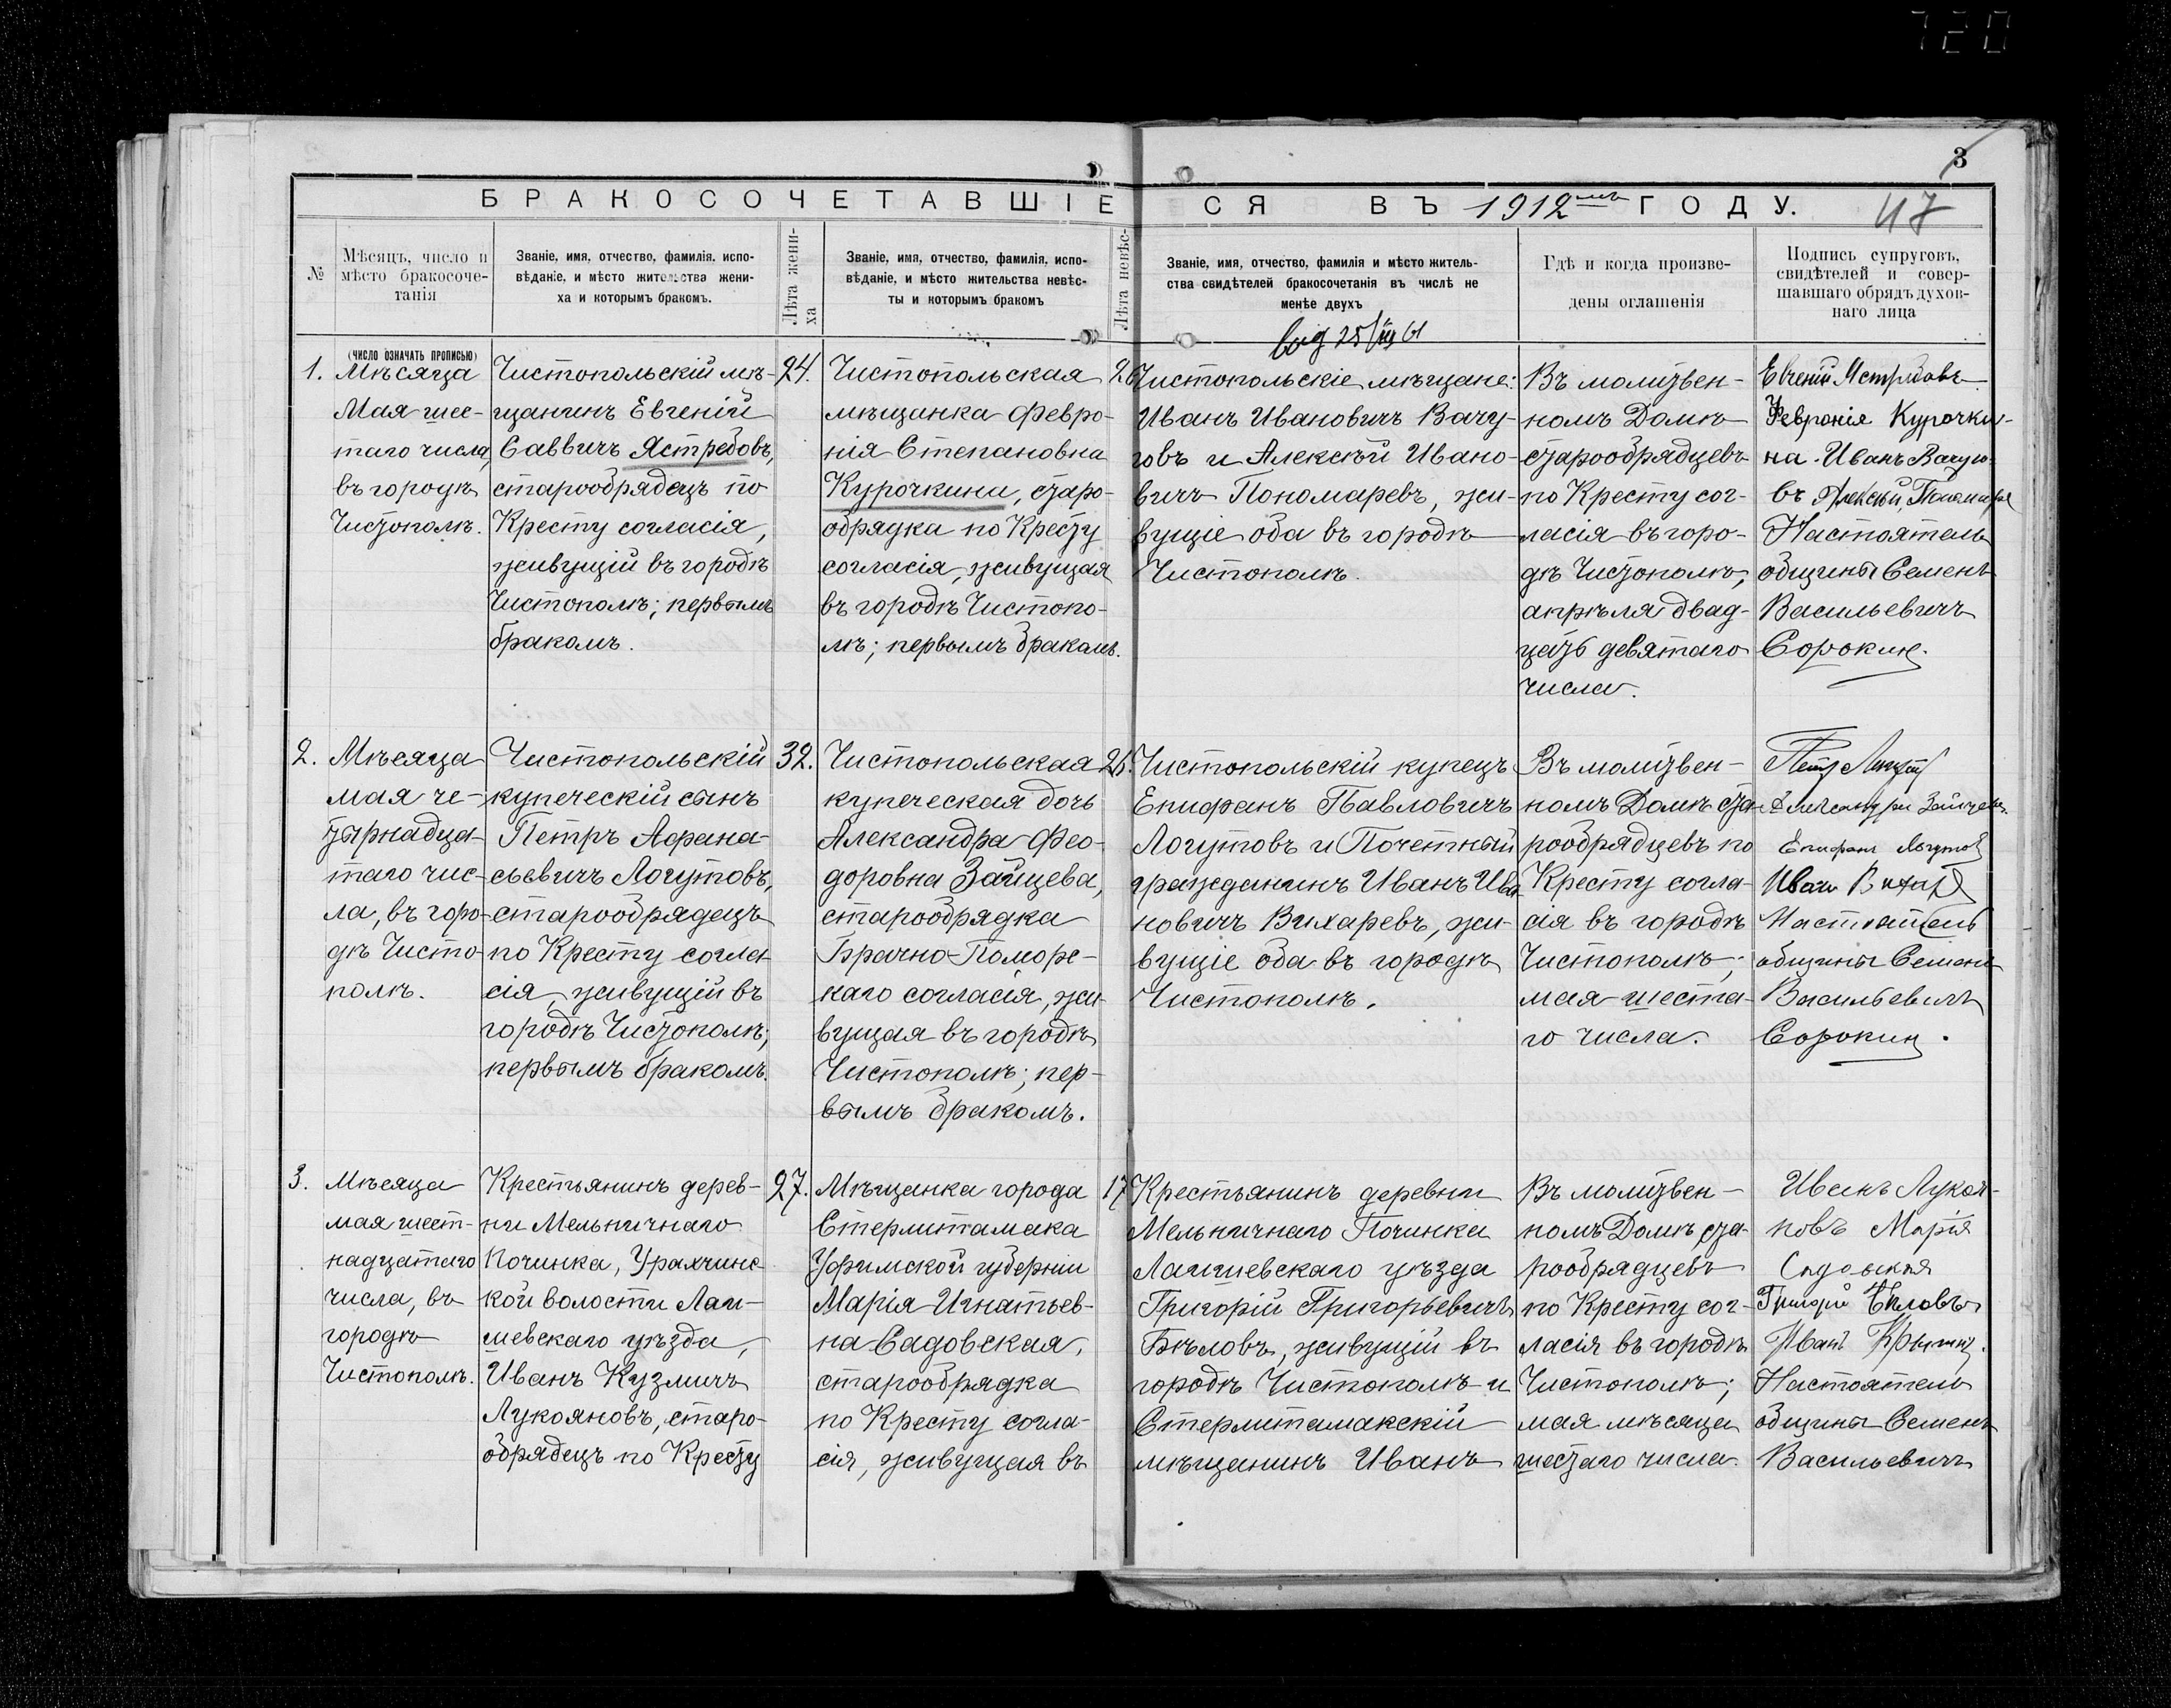 3
БРАКОСОЧЕТАВШІЕСЯ ВЪ 1912мъ ГОДУ.
47
№
Мѣсяцъ, число и
мѣсто бракосоче-
танія
(ЧИСЛО ОЗНАЧАТЬ ПРОПИСЬЮ)
Званіе, имя, отчество, фамилія, испо-
вѣданіе, и мѣсто жительства жени-
ха и которымъ бракомъ.
Лѣта жени-
ха
Званіе, имя, отчество, фамилія, испо-
вѣданіе, и мѣсто жительства невѣс-
ты и которымъ бракомъ
Лѣта невѣс-
Званіе, имя, отчество, фамилія и мѣсто житель-
ства свидѣтелей бракосочетанія въ числѣ не
менѣе двухъ
25/III 61
Гдѣ и когда произве-
дены оглашенія
Подпись супруговъ,
свидѣтелей и совер-
шавшаго обрядъ духов-
наго лица
1.
Мѣсяца
Мая шес-
таго числа,
въ городѣ
Чистополѣ.
Чистопольскій мѣ-
щанинъ Евгеній
Саввичъ Ястребовъ,
старообрядецъ по
Кресту согласія,
живущій въ городѣ
Чистополѣ; первымъ
бракомъ.
24.
Чистопольская
мѣщанка Февро-
нія Степановна
Курочкина, старо-
обрядка по Кресту
согласія, живущая
въ городѣ Чистопо-
лѣ; первымъ бракомъ.
Чистопольскіе мѣщане:
Иванъ Ивановичъ Вачу-
говъ и Алексѣй Ивано-
вичъ Пономаревъ, жи-
вущіе оба въ городѣ
Чистополѣ.
Въ молитвен-
номъ Домѣ
старообрядцевъ
по Кресту сог-
ласія въ горо-
дѣ Чистополѣ;
апрѣля двад-
цать девятаго
числа.
Евгеній Ястребовъ
Февронія Курочки-
на. Иванъ Вачуго-
въ Алексѣй
Настоятель
общины Семенъ
Васильевичъ
Сорокин.
2.
Мѣсяца
мая че-
тырнадца-
таго чис-
ла, въ горо-
дѣ Чисто-
полѣ.
Чистопольскій
купеческій сынъ
Петръ Афана-
сьевичъ Логутовъ,
старообрядецъ
по Кресту согла-
сія, живущій въ
городѣ Чистополѣ;
первымъ бракомъ.
32.
Чистопольская
купеческая дочь
Александра Фео-
доровна Зайцева,
старообрядка
Брачно-Поморс-
каго согласія, жи-
вущая въ городѣ
Чистополѣ; пер-
вымъ бракомъ.
26.
Чистопольскій купецъ
Епифанъ Павловичъ
Логутовъ и Почетный
гражданинъ Иванъ Ива-
новичъ Вихаревъ, жи-
вущіе оба въ городѣ
Чистополѣ.
Въ молитвен-
номъ Домѣ ста-
рообрядцевъ по
Кресту согла-
сія въ городѣ
Чистополѣ;
мая шеста-
го числа.
Петръ
Александра
Епифанъ Логутовъ
Иван
Настоятель
общины Семенъ
Васильевичъ
Сорокин.
3.
Мѣсяца
мая шест-
надцатаго
числа, въ
городѣ
Чистополѣ.
Крестьянинъ дерев-
ни Мельничнаго
Починка, Урахчинс-
кой волости Лаи-
шевскаго уѣзда,
Иванъ Кузмичъ
Лукояновъ, старо-
обрядецъ по Кресту
27.
Мѣщанка города
Стерлитамака
Уфимской губерніи
Марія Игнатьев-
на Садовская,
старообрядка
по Кресту согла-
сія, живущая въ
17
Крестьянинъ деревни
Мельничнаго Починка
Лаишевскаго уѣзда
Григорій Григорьевичъ
Бѣловъ, живущій въ
городѣ Чистополѣ и
Стерлитамакскій
мѣщанинъ Иванъ
Въ молитвен-
номъ Домѣ ста-
рообрядцевъ
по Кресту сог-
ласія въ городѣ
Чистополѣ;
мая мѣсяца
шестаго числа.
Иванъ Лукоя-
новъ Марія
Садовская
Григорій Бѣловъ
Иванъ
Настоятель
общины Семенъ
Васильевичъ